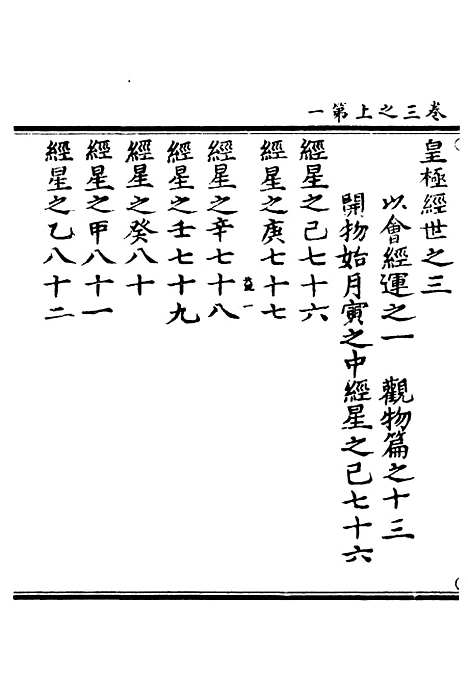 卷三之上第一
皇極經世之三
以會經運之一　觀物篇之十三
開物始月寅之中經星之己七十六
經星之己七十六
經星之庚七十七
經星之辛七十八
經星之壬七十九
經星之癸八十
經星之甲八十一
經星之乙八十二